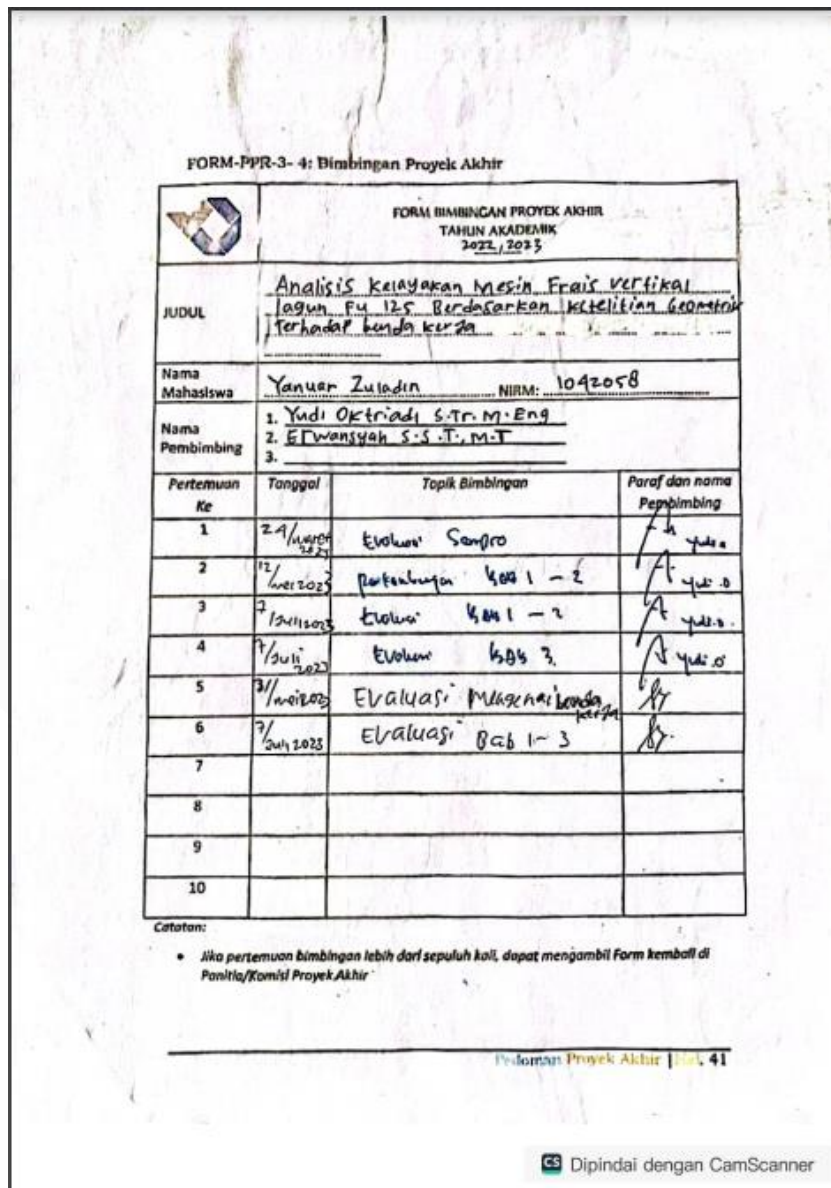 FORM-PPR-3- 4: Bimbingan Proyek Akhir
FORM BIMBINGAN PROYEK AKHIR
TAHUN AKADEMIK
2022/2023
JUDUL
Analisis Kelayakan Mesin Frais Vertikal
Lagun FU 125 Berdasarkan Ketelitian Geometrik
Terhadap benda kerja
Nama
Mahasiswa
Yanuar Zuladin NIRM: 1042058
Nama
Pembimbing
1. Yudi Oktriadi S.Tr. M.Eng
2. Erwansyah S.S.T., M.T
3.
Pertemuan
Ke
Tanggal
Topik Bimbingan
Paraf dan nama
Pembimbing
1 24/maret 2023 Evaluasi Sempro
2 12/mei 2023 bab 1 - 2 yudi.o
3 7/Juli 2023 Evaluasi bab 1 - 2 yudi.o.
4 7/Juli 2023 Evaluasi bab 3. yudi.o
5 31/mei 2023 Evaluasi Mengenai benda kerja
6 7/Juli 2023 Evaluasi Bab 1 - 3
7
8
9
10
Catatan:
• Jika pertemuan bimbingan lebih dari sepuluh kali, dapat mengambil Form kembali di
Panitia/Komisi Proyek Akhir
Pedoman Proyek Akhir | Hal. 41
CS Dipindai dengan CamScanner